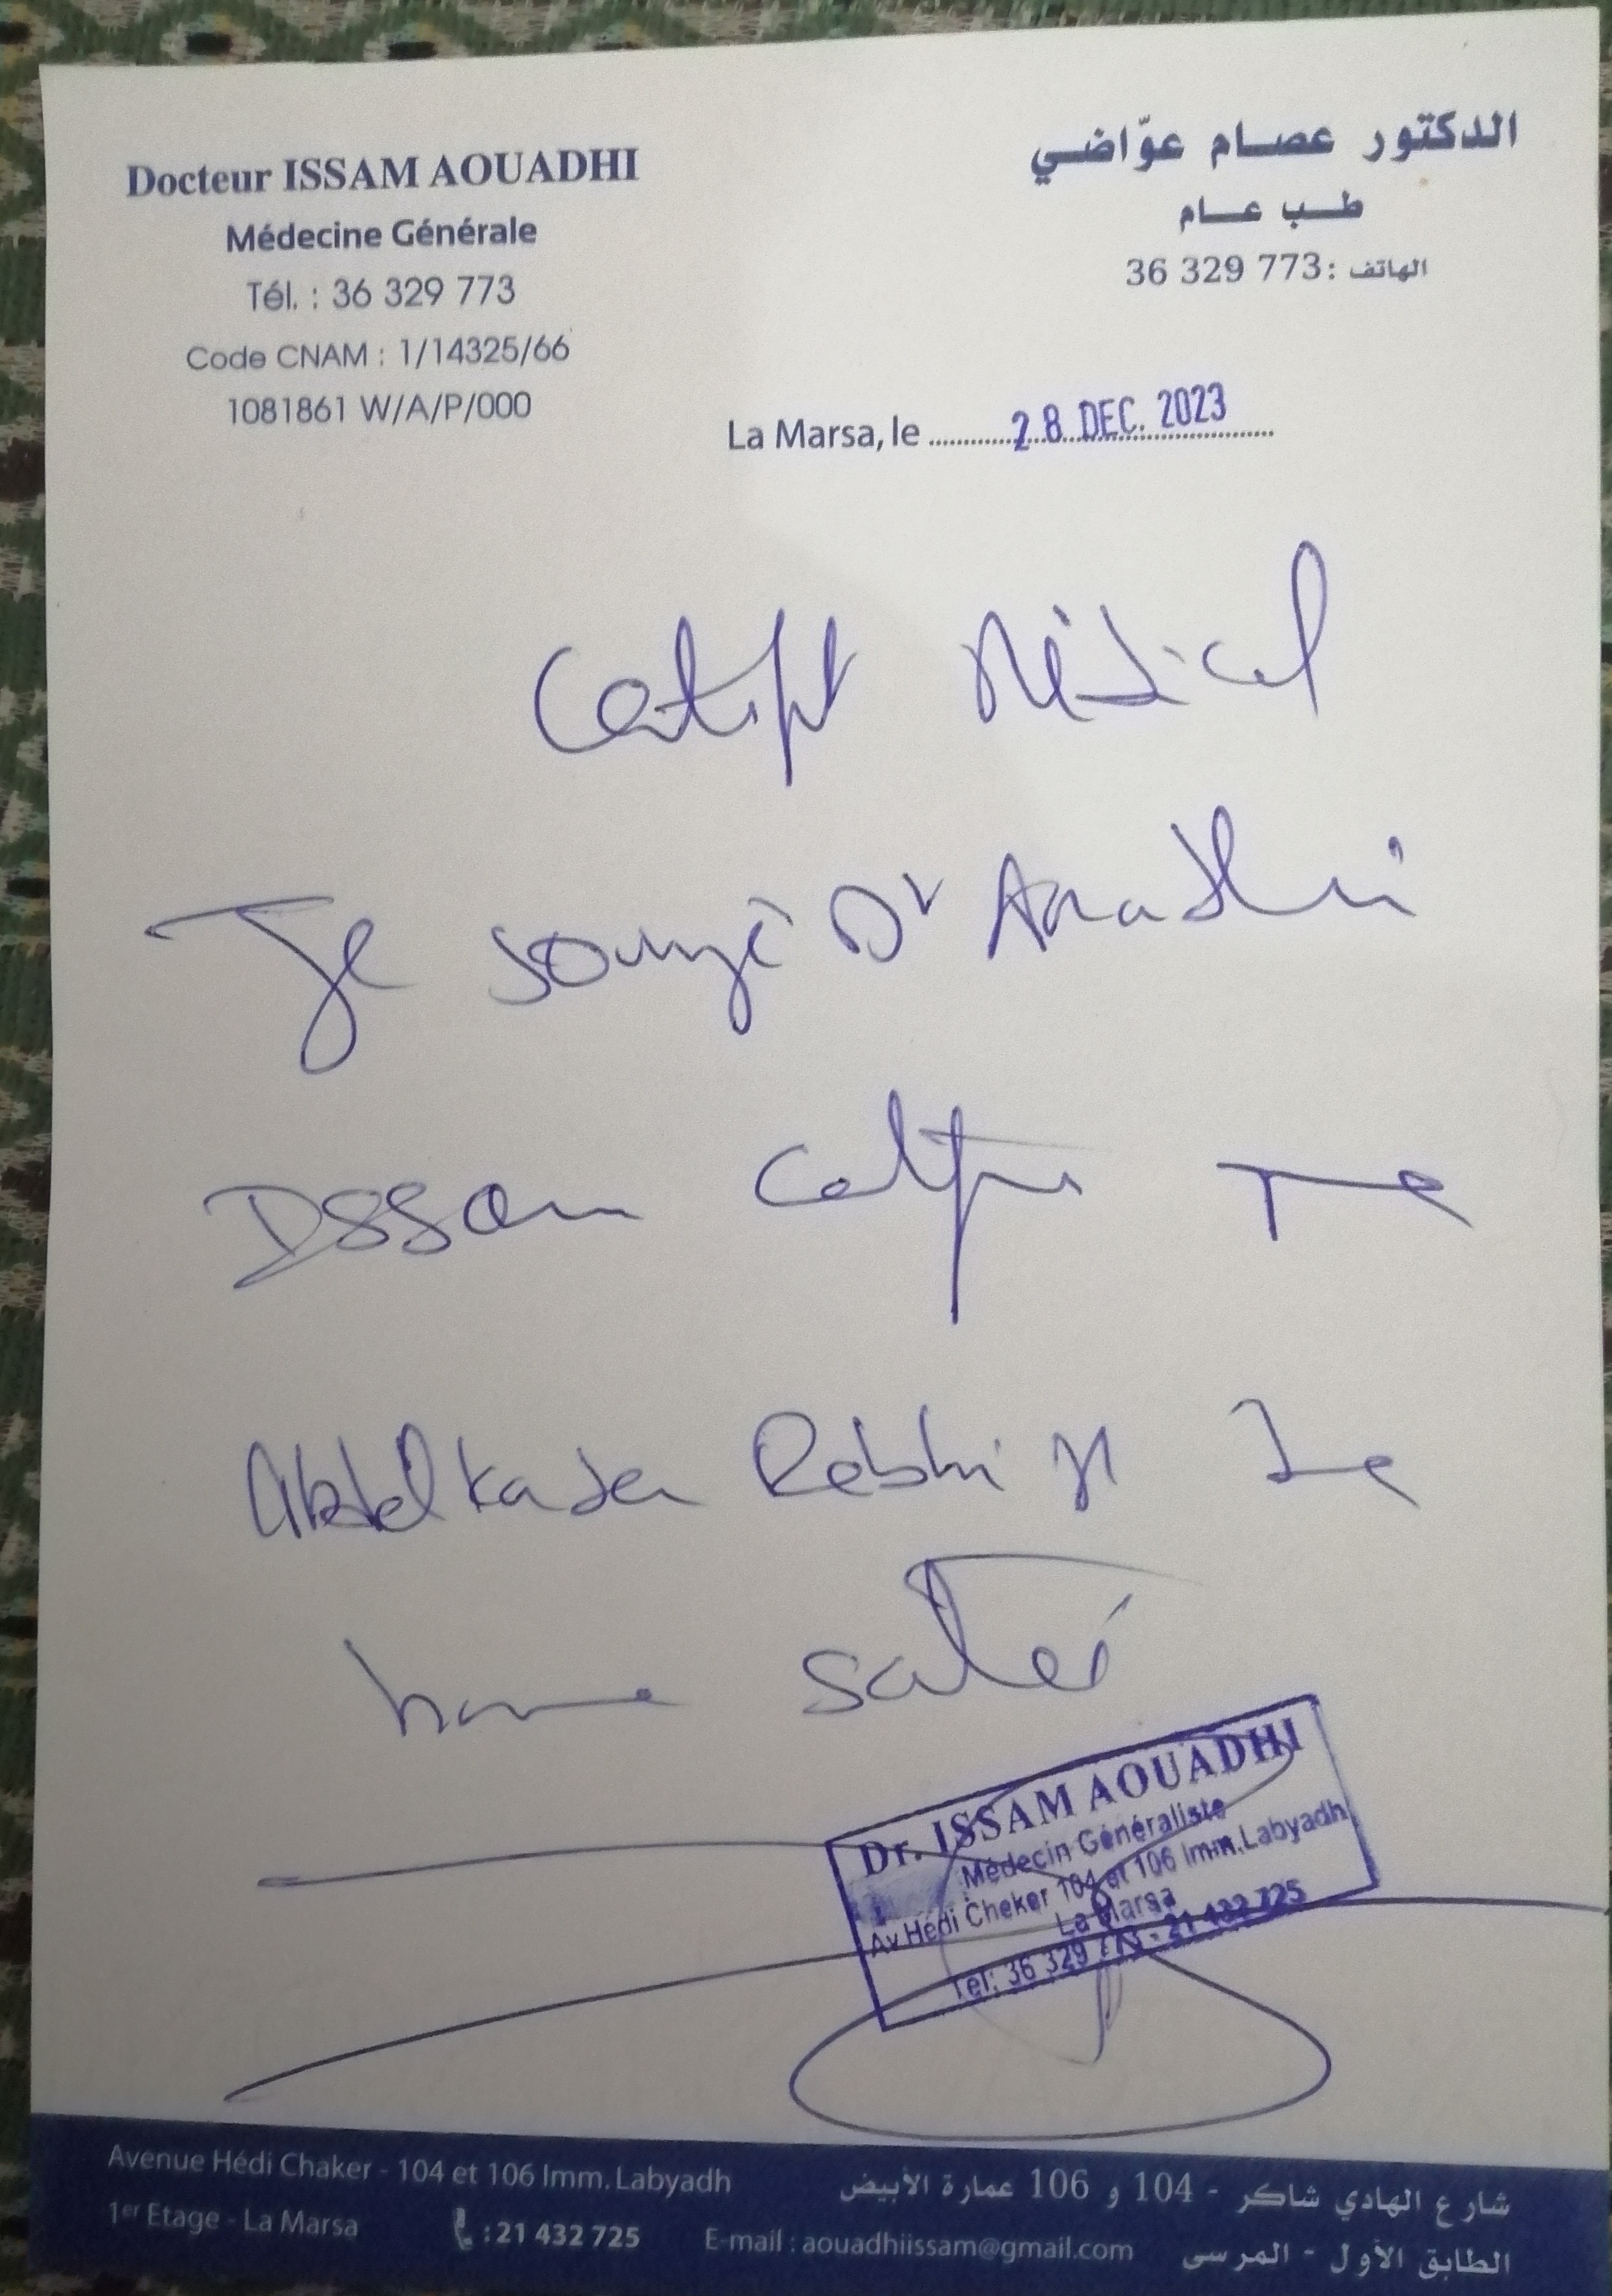 Docteur ISSAM AOUADHI
Médecine Générale
Tél. : 36 329 773
Code CNAM : 1/14325/66
1081861 W/A/P/000
الدكتور عصام عوّاضي
طب عام
الهاتف : 36 329 773
La Marsa, le 28 DEC. 2023
Certift Médical
Je Dr Aouadhi
Issam
Abdelkader Rebhi
bonne santé
Dr. ISSAM AOUADHI
Médecin Généraliste
Av Hédi Cheker 104 et 106 Imm.Labyadh
La Marsa
Tel: 36 329 773 - 21 432 725
Avenue Hédi Chaker - 104 et 106 Imm. Labyadh
1er Etage - La Marsa
: 21 432 725
E-mail : aouadhiissam@gmail.com
شارع الهادي شاكر - 104 و 106 عمارة الأبيض
الطابق الأول - المرسى